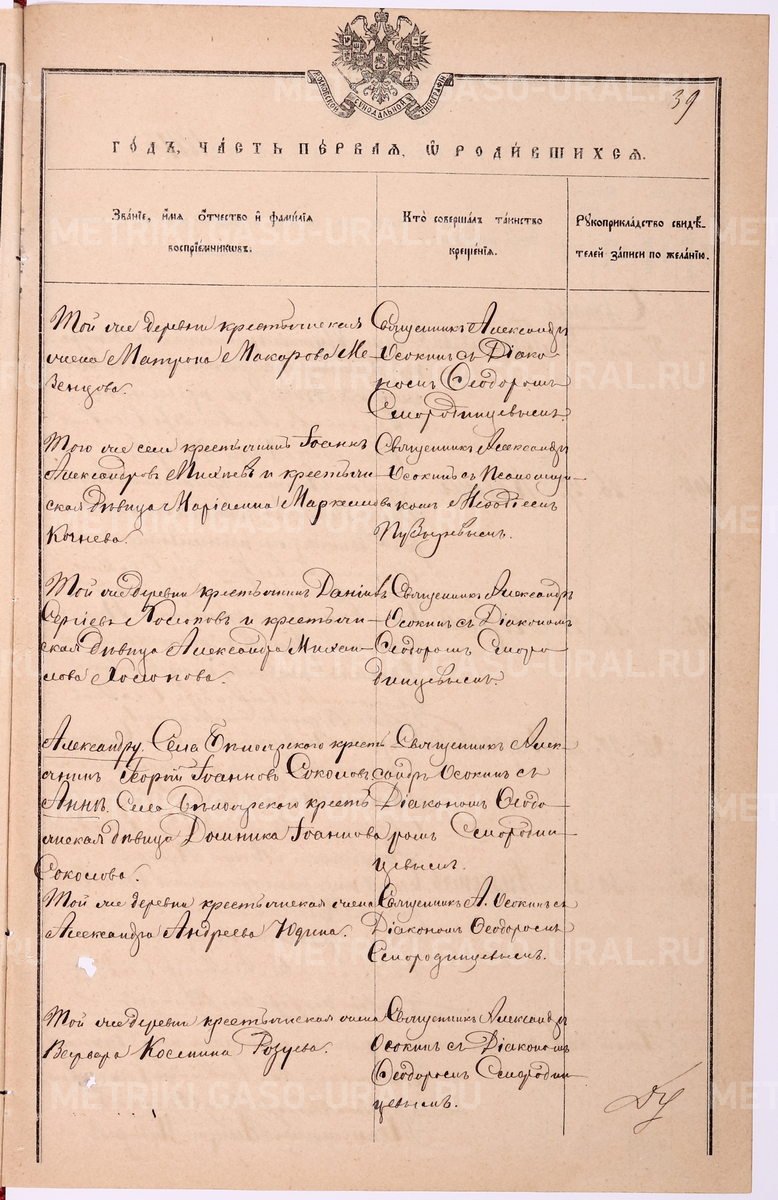 39
МОСКОВСКОЙ СѴНОДАЛЬНОЙ ТИПОГРАФІИ
ГОДЪ, ЧАСТЬ ПЕРВАЯ, Ѿ РОДИВШИХСЯ.
Званіе, имя отчество и фамилія
воспріемниковъ.
Кто совершалъ таинство
крещенія.
Рукоприкладство свидѣ-
телей записи по желанію.
Той же деревни крестьянская
жена Матрона Макарова Ме-
зенцова.
Священникъ Александръ
Осокинъ съ Діако-
номъ Ѳеодоромъ
Смородинцевымъ.
Того же села крестьянинъ Іоаннъ
Александровъ и крестьян-
ская дѣвица Маріамна Маркелова
Кочнева.
Священникъ Александръ
Осокинъ съ Псаломщи-
комъ Меѳодіемъ
Пузыревымъ.
Той же деревни крестьянинъ Даніилъ
Сергіевъ Хлоповъ и крестьян-
ская дѣвица Александра Михаи-
лова Хлопова.
Священникъ Александръ
Осокинъ съ Діакономъ
Ѳеодоромъ Сморо-
динцевымъ.
Александру. Села Бѣлоярского кресть-
янинъ Георгій Іоанновъ Соколовъ
Аннѣ. Села Бѣлоярского кресть-
янская дѣвица Домника Іоаннова
Соколова.
Священникъ Алек-
сандръ Осокинъ съ
Діакономъ Ѳеодо-
ромъ Смородин-
цевымъ.
Той же деревни крестьянская жена
Александра Андреева Юдина.
Священникъ А. Осокинъ съ
Діакономъ Ѳеодоромъ
Смородинцевымъ.
Той же деревни крестьянская жена
Варвара Космина Розуева.
Священникъ Александръ
Осокинъ съ Діакономъ
Ѳеодоромъ Смородин-
цевымъ.
METRIKI.GASO-URAL.RU